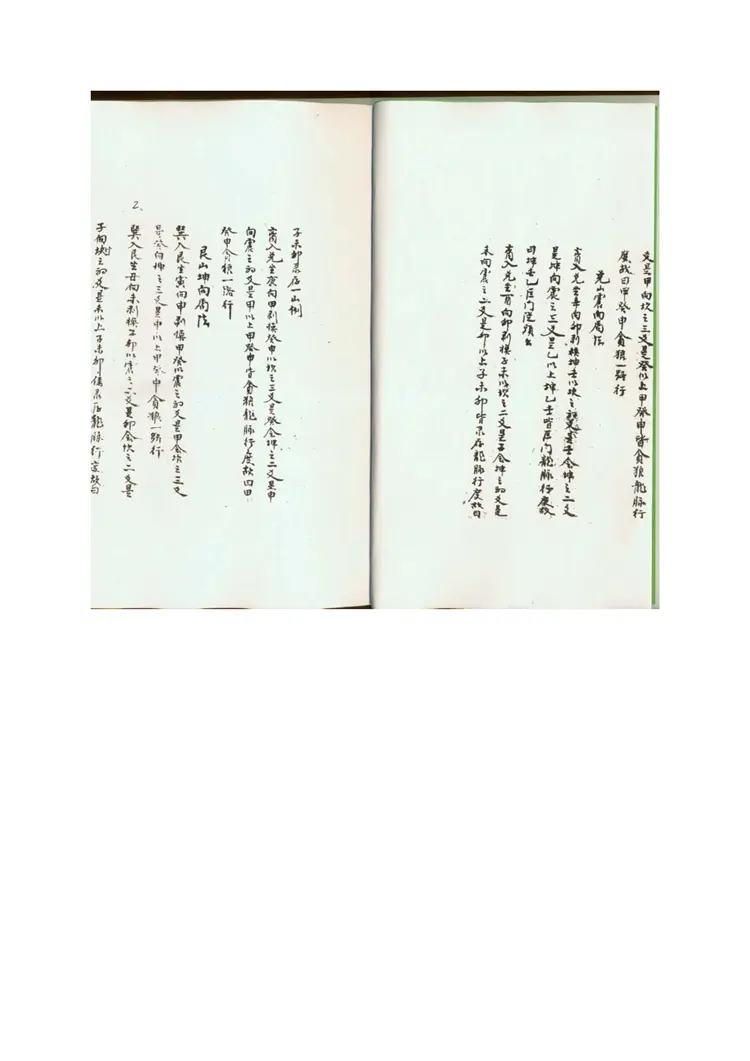 爻是甲向坎之三爻是癸以上甲癸申皆貪狼龍脉行
度故曰甲癸申貪狼一路行
兑山震向局法
入兑坐辛向卯剥换坤壬以坎之初爻是壬会坤之二爻
是坤向震之三爻是乙以上坤乙壬皆巨门龍脉行度故
曰坤壬乙巨门從頭出
入兑坐酉向卯剥换子未以坎之二爻是子会坤之初爻是
未向震之二爻是卯以上子未卯皆禄存龍脉行度故曰
子未卯禄存一山例
入兑坐庚向甲剥换癸申以坎之三爻是癸会坤之二爻是申
向震之初爻是甲以上甲癸申皆貪狼龍脉行度故曰甲
癸申貪狼一路行
艮山坤向局法
巽入艮坐寅向申剥换甲癸以震之初爻是甲会坎之三爻
是癸向坤之三爻是申以上甲癸申貪狼一路行
2、
巽入艮坐丑向未剥换子卯以震之二爻是卯会坎之二爻是
子向坤之初爻是未以上子未卯俱禄存龍脉行度故曰